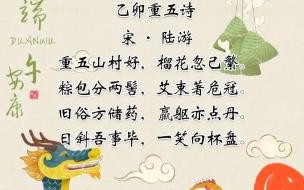 端午安康
DUANWU
乙卯重五诗
宋·陆游
重五山村好，榴花忽已繁。
粽包分两髻，艾束著危冠。
旧俗方储药，羸躯亦点丹。
日斜吾事毕，一笑向杯盘。